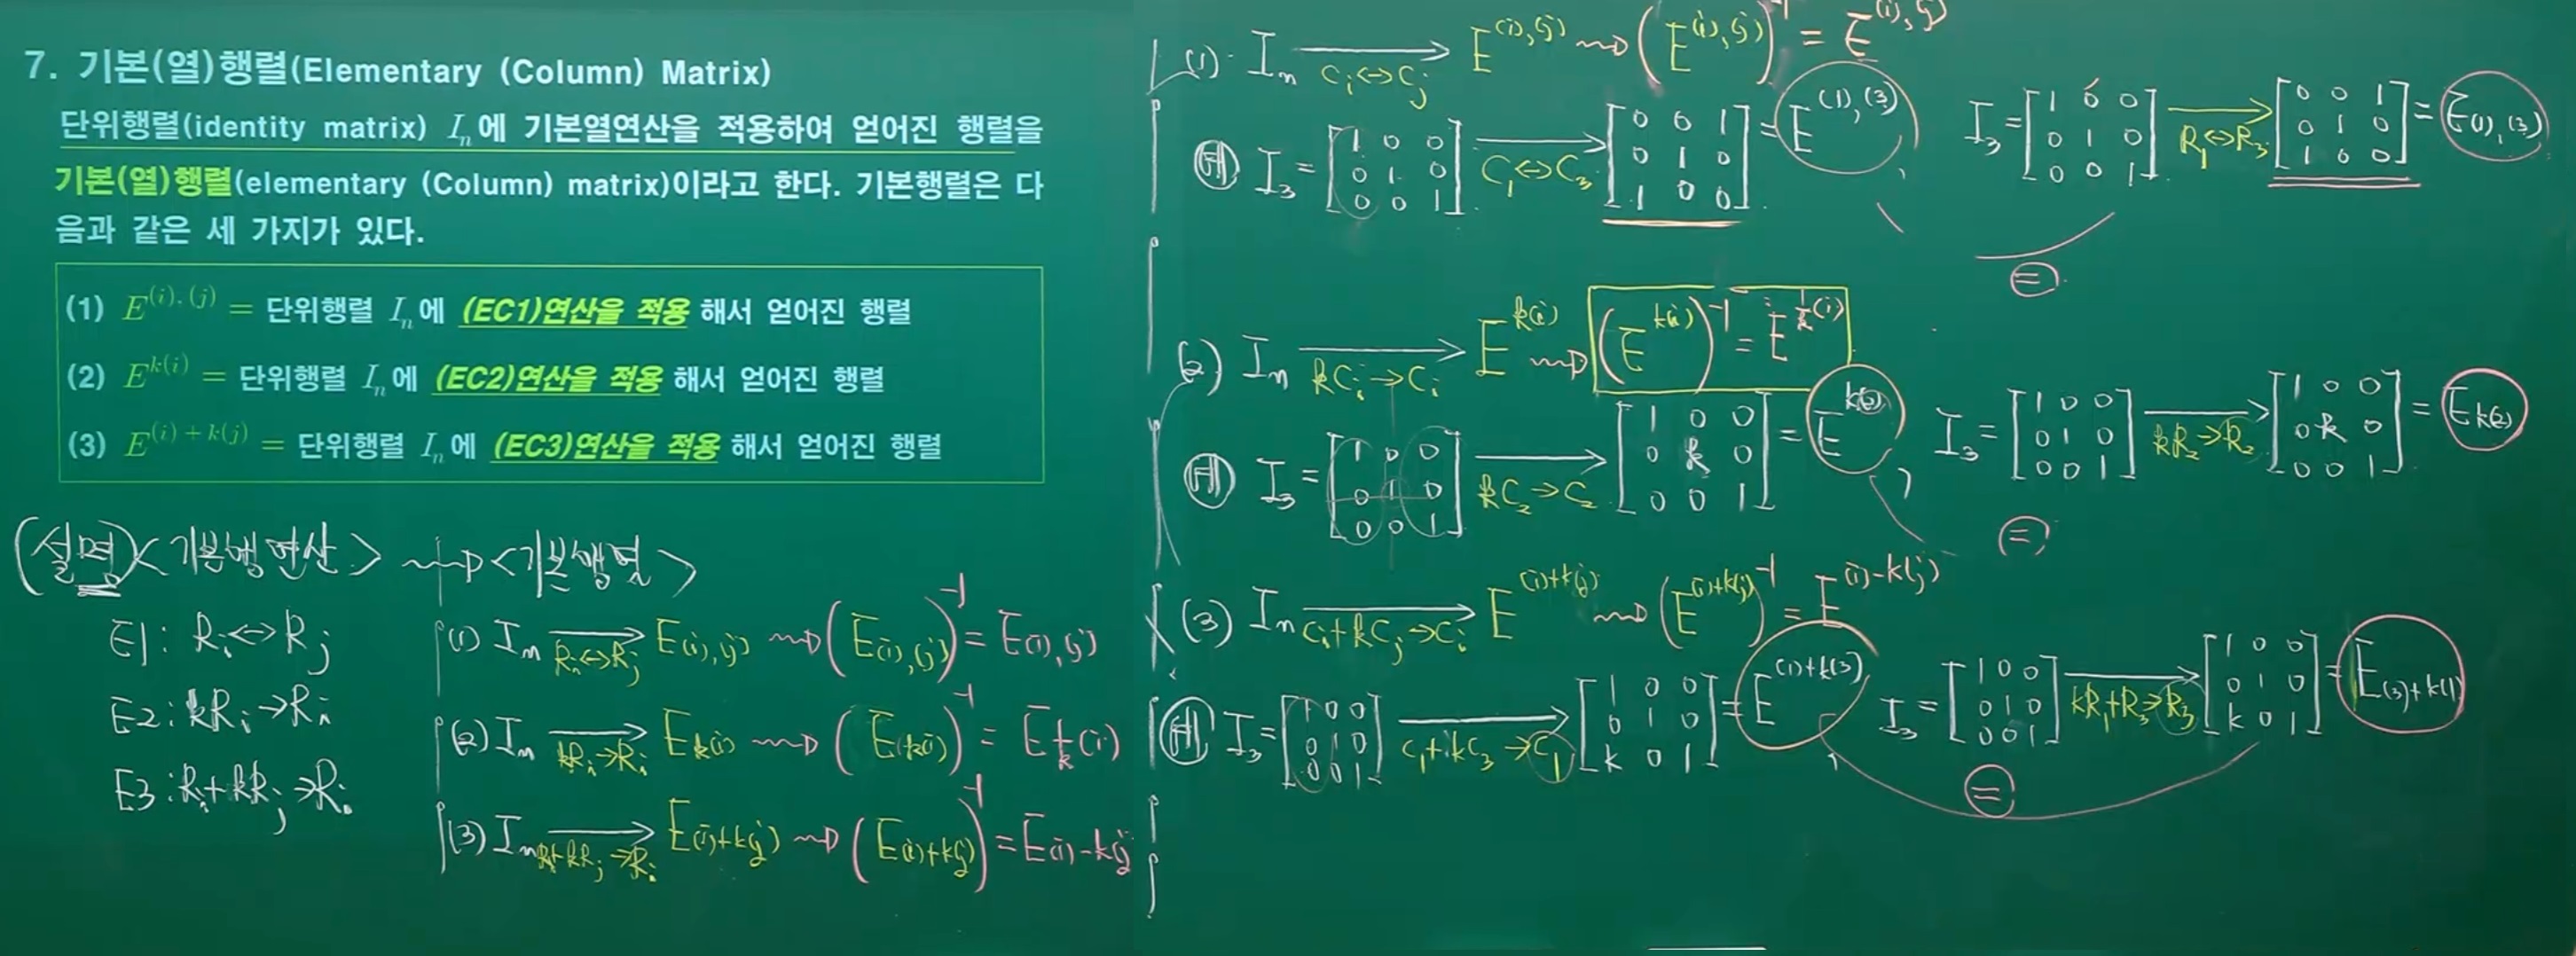 7. 기본(열)행렬(Elementary (Column) Matrix)
단위행렬(identity matrix) Iₙ에 기본열연산을 적용하여 얻어진 행렬을
기본(열)행렬(elementary (Column) matrix)이라고 한다. 기본행렬은 다
음과 같은 세 가지가 있다.
(1) E^{(i),(j)} = 단위행렬 Iₙ에 (EC1)연산을 적용 해서 얻어진 행렬
(2) E^{k(i)} = 단위행렬 Iₙ에 (EC2)연산을 적용 해서 얻어진 행렬
(3) E^{(i)+k(j)} = 단위행렬 Iₙ에 (EC3)연산을 적용 해서 얻어진 행렬
(설명) <기본행연산> ⇝ <기본행렬>
E1: Rᵢ↔Rⱼ
E2: kRᵢ→Rᵢ
E3: Rᵢ+kRⱼ→Rᵢ
(1) Iₙ → Rᵢ↔Rⱼ E_{(i),(j)} ⇝ (E_{(i),(j)})⁻¹ = E_{(i),(j)}
(2) Iₙ → kRᵢ→Rᵢ E_{k(i)} ⇝ (E_{k(i)})⁻¹ = E_{1/k(i)}
(3) Iₙ → Rᵢ+kRⱼ→Rᵢ E_{(i)+k(j)} ⇝ (E_{(i)+k(j)})⁻¹ = E_{(i)-k(j)}
(1) Iₙ → Cᵢ↔Cⱼ E^{(i),(j)} ⇝ (E^{(i),(j)})⁻¹ = E^{(i),(j)}
예 I₃ = [1 0 0; 0 1 0; 0 0 1] → C₁↔C₃ [0 0 1; 0 1 0; 1 0 0] = E^{(1),(3)},
I₃ = [1 0 0; 0 1 0; 0 0 1] → R₁↔R₃ [0 0 1; 0 1 0; 1 0 0] = E_{(1),(3)}
=
(2) Iₙ → kCᵢ→Cᵢ E^{k(i)} ⇝ (E^{k(i)})⁻¹ = E^{1/k(i)}
예 I₃ = [1 0 0; 0 1 0; 0 0 1] → kC₂→C₂ [1 0 0; 0 k 0; 0 0 1] = E^{k(2)},
I₃ = [1 0 0; 0 1 0; 0 0 1] → kR₂→R₂ [1 0 0; 0 k 0; 0 0 1] = E_{k(2)}
=
(3) Iₙ → Cᵢ+kCⱼ→Cᵢ E^{(i)+k(j)} ⇝ (E^{(i)+k(j)})⁻¹ = E^{(i)-k(j)}
예 I₃ = [1 0 0; 0 1 0; 0 0 1] → C₁+kC₃→C₁ [1 0 0; 0 1 0; k 0 1] = E^{(1)+k(3)},
I₃ = [1 0 0; 0 1 0; 0 0 1] → kR₁+R₃→R₃ [1 0 0; 0 1 0; k 0 1] = E_{(3)+k(1)}
=